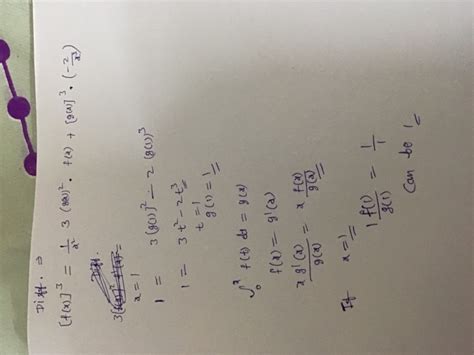 Diff. ⇒
[f(x)]³ = 1/x² · 3(g(x))² · f(x) + [g(x)]³ · (-2/x³)
x = 1
1 = 3(g(1))² - 2(g(1))³
1 = 3t² - 2t³
t = 1
g(1) = 1
∫₀ˣ f(t) dt = g(x)
f(x) = g'(x)
x g'(x)/g(x) = x f(x)/g(x)
If x = 1
1 f(1)/g(1) = 1/1
Can be 1